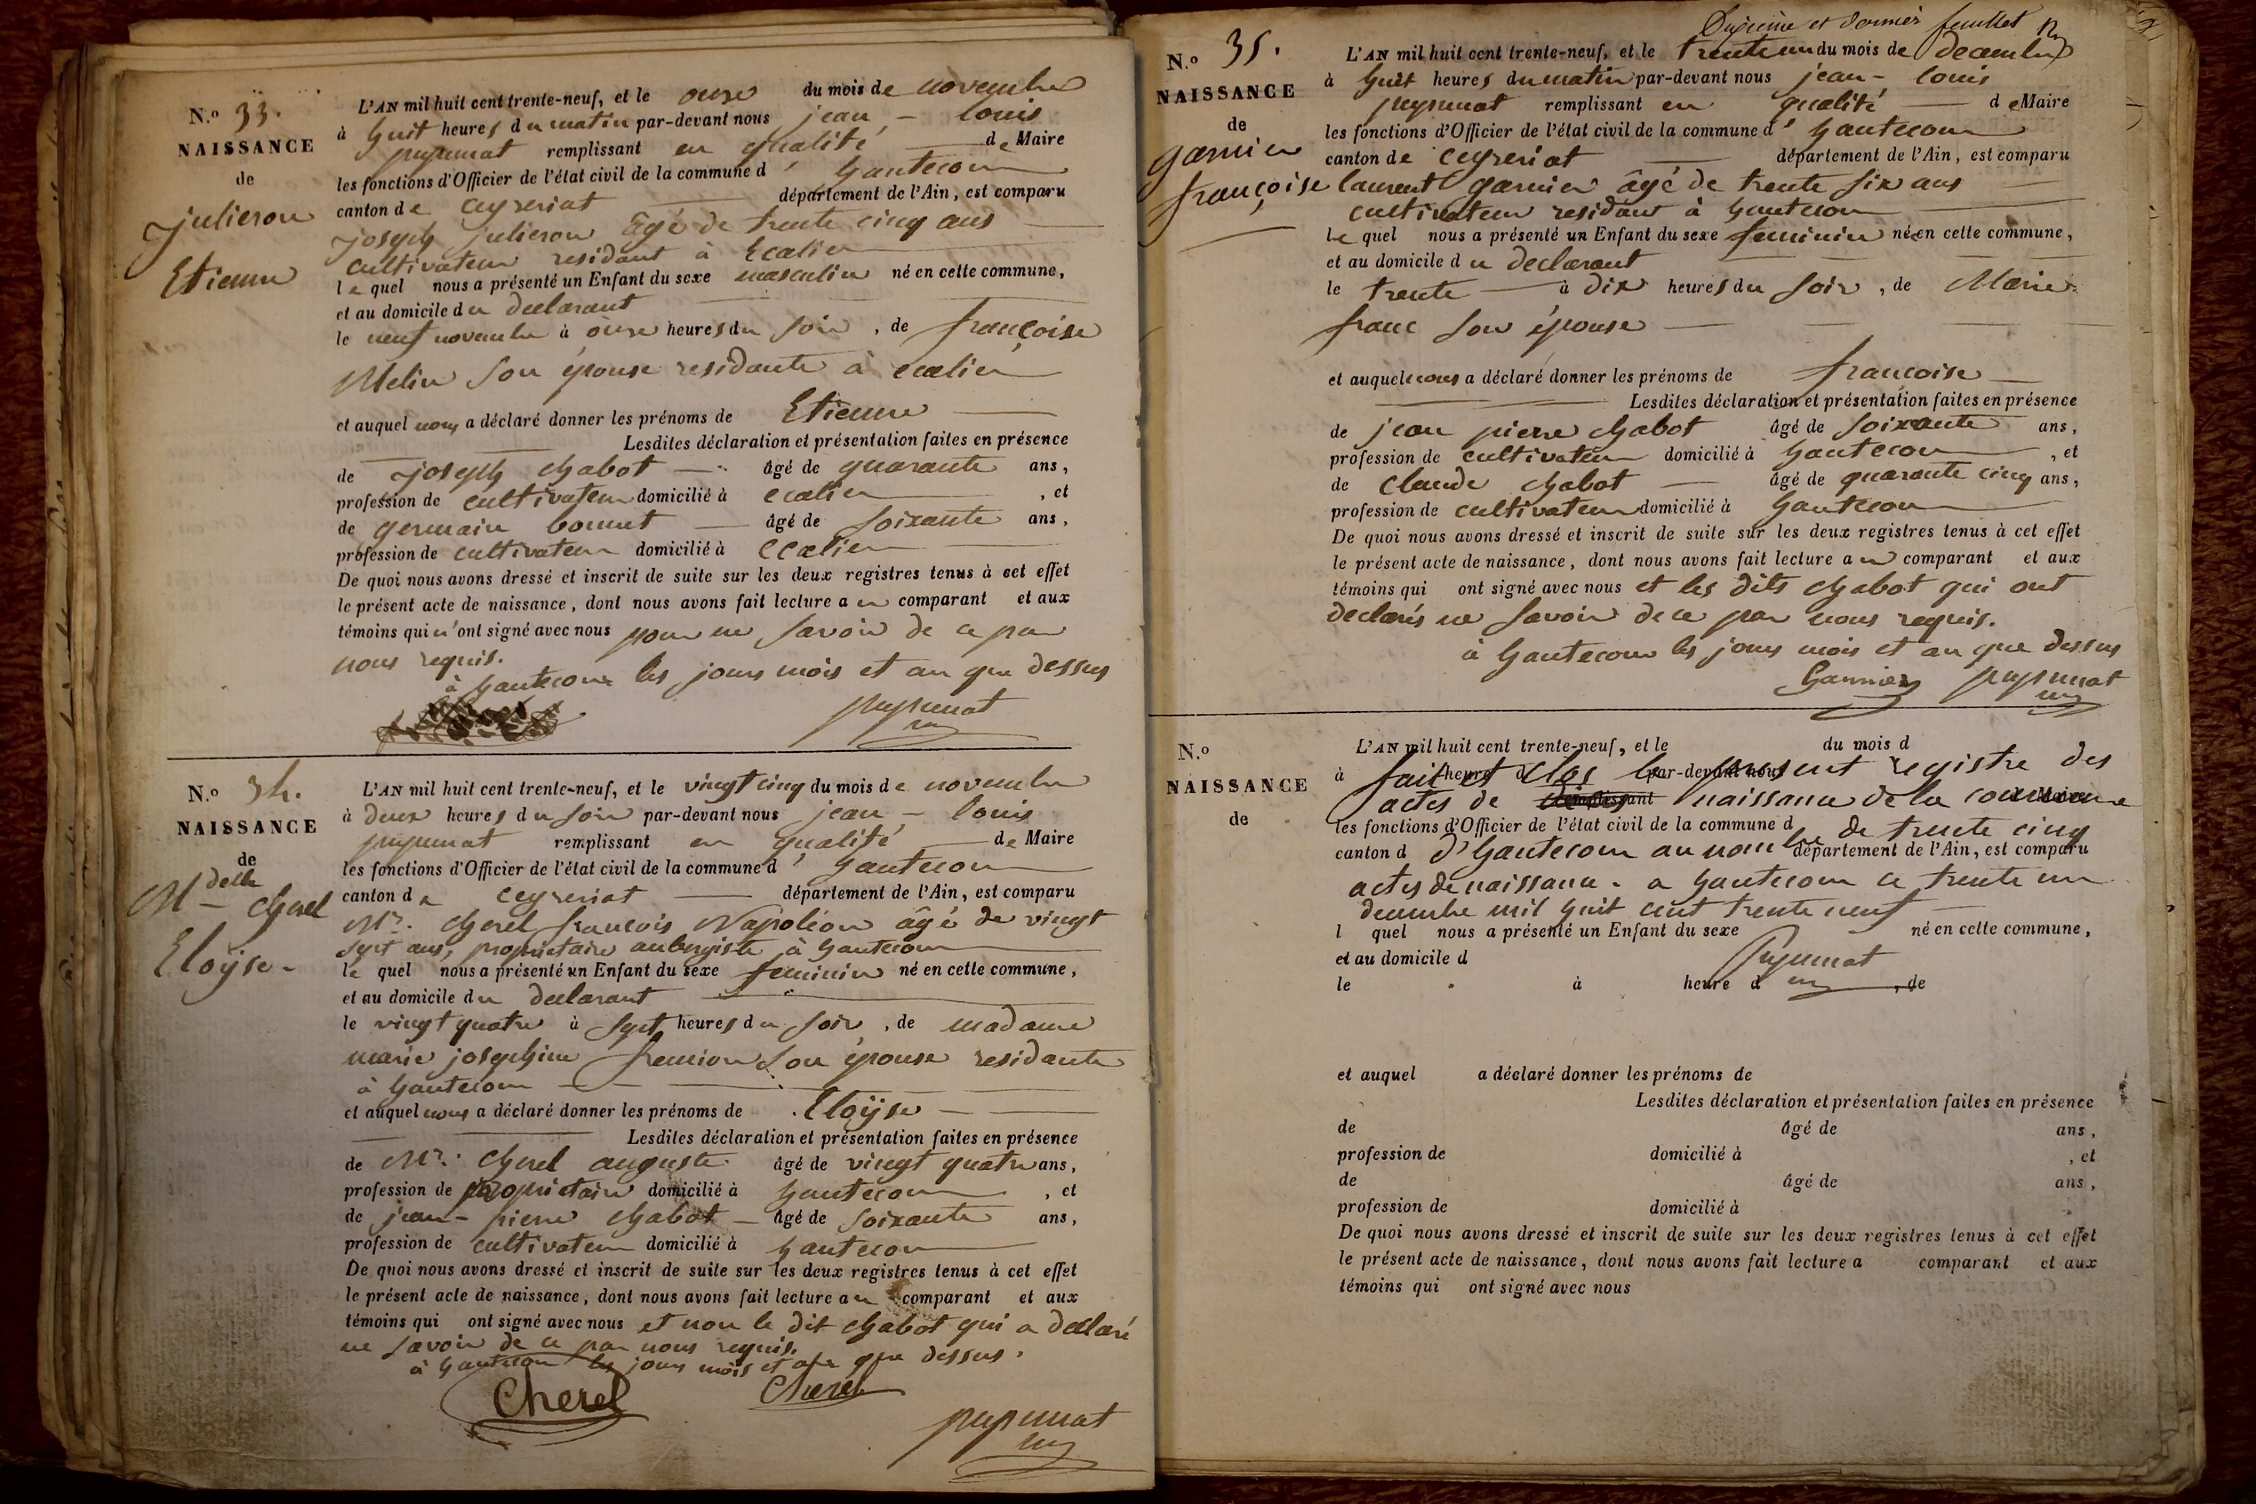 N.º 33.
NAISSANCE
de
julieron
Etienne
L'AN mil huit cent trente-neuf, et le onze du mois de novembre
à huit heures du matin par-devant nous jean - louis
pupunat remplissant en qualité de Maire
les fonctions d'Officier de l'état civil de la commune d' hautecour
canton de ceyzeriat département de l'Ain, est comparu
joseph julieron âgé de trente cinq ans
cultivateur residant à Ecalier
le quel nous a présenté un Enfant du sexe masculin né en cette commune,
et au domicile du declarant
le neuf novembre à onze heures du soir, de françoise
Melin son épouse residante à ecalier
et auquel nous a déclaré donner les prénoms de Etienne
Lesdites déclaration et présentation faites en présence
de joseph chabot âgé de quarante ans,
profession de cultivateur domicilié à ecalier, et
de germain bonnet âgé de soixante ans,
profession de cultivateur domicilié à ecalier
De quoi nous avons dressé et inscrit de suite sur les deux registres tenus à cet effet
le présent acte de naissance, dont nous avons fait lecture au comparant et aux
témoins qui n'ont signé avec nous pour ne savoir de ce par
nous requis.
à hautecour les jours mois et an que dessus
pupunat
N.º 34.
NAISSANCE
de
Mdelle cherel
Eloÿse -
L'AN mil huit cent trente-neuf, et le vingt cinq du mois de novembre
à deux heures du soir par-devant nous jean - louis
pupunat remplissant en qualité de Maire
les fonctions d'Officier de l'état civil de la commune d' hautecour
canton de ceyzeriat département de l'Ain, est comparu
Mr. cherel francois Napoléon âgé de vingt
sept ans, proprietaire aubergiste à hautecour
le quel nous a présenté un Enfant du sexe feminin né en cette commune,
et au domicile du declarant
le vingt quatre à sept heures du soir, de madame
marie josephine son épouse residante
à hautecour
et auquel nous a déclaré donner les prénoms de Eloÿse
Lesdites déclaration et présentation faites en présence
de Mr. cherel auguste âgé de vingt quatre ans,
profession de proprietaire domicilié à hautecour, et
de jean - pierre chabot âgé de soixante ans,
profession de cultivateur domicilié à hautecour
De quoi nous avons dressé et inscrit de suite sur les deux registres tenus à cet effet
le présent acte de naissance, dont nous avons fait lecture au comparant et aux
témoins qui ont signé avec nous et non le dit chabot qui a declaré
ne savoir de ce par nous requis.
à hautecour les jours mois et an que dessus.
Cherel Cherel
pupunat
et dernier feuillet
N.º 35.
NAISSANCE
de
garnier
françoise
L'AN mil huit cent trente-neuf, et le trente un du mois de decembre
à huit heures du matin par-devant nous jean - louis
pupunat remplissant en qualité de Maire
les fonctions d'Officier de l'état civil de la commune d' hautecour
canton de ceyzeriat département de l'Ain, est comparu
laurent garnier âgé de trente six ans
cultivateur residant à hautecour
le quel nous a présenté un Enfant du sexe feminin né en cette commune,
et au domicile du declarant
le trente à dix heures du soir, de Marie
franc son épouse
et auquel nous a déclaré donner les prénoms de francoise
Lesdites déclaration et présentation faites en présence
de jean pierre chabot âgé de soixante ans,
profession de cultivateur domicilié à hautecour, et
de claude chabot âgé de quarante cinq ans,
profession de cultivateur domicilié à hautecour
De quoi nous avons dressé et inscrit de suite sur les deux registres tenus à cet effet
le présent acte de naissance, dont nous avons fait lecture au comparant et aux
témoins qui ont signé avec nous et les dits chabot qui ont
declarés ne savoir de ce par nous requis.
à hautecour les jours mois et an que dessus
Garnier pupunat
N.º
NAISSANCE
de
L'AN mil huit cent trente-neuf, et le du mois d
à heure d par-devant nous
fait et clos le present registre des
actes de naissance de la commune
remplissant Maire
les fonctions d'Officier de l'état civil de la commune d
d'hautecour au nombre de trente cinq
canton d département de l'Ain, est comparu
actes de naissance. a hautecour ce trente un
decembre mil huit cent trente neuf
l quel nous a présenté un Enfant du sexe né en cette commune,
et au domicile d
Pupunat
le à heure d , de
et auquel a déclaré donner les prénoms de
Lesdites déclaration et présentation faites en présence
de âgé de ans,
profession de domicilié à , et
de âgé de ans,
profession de domicilié à
De quoi nous avons dressé et inscrit de suite sur les deux registres tenus à cet effet
le présent acte de naissance, dont nous avons fait lecture a comparant et aux
témoins qui ont signé avec nous